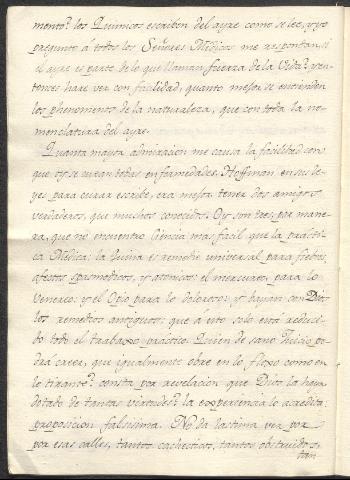 mento? los Quimicos escriben del ayre como se lee, y yo
pregunto á todos los Señores Medicos me respondan, si
el ayre es parte de lo que llaman fuerza de la Vida? y en-
tonces haré ver con facilidad, quanto mejor se entienden
los phenomenos de la naturaleza, que con toda la no-
menclatura del ayre.
Quanta mayor admiracion me causa la facilidad con
que oy se curan todas enfermedades. Hoffman en su le-
yes para curar escribe, era mejor tener dos amigos
verdaderos, que muchos conocidos. Oy son tres, por mane-
ra, que no encuentro Ciencia mas facil que la practi-
ca Medica: la Quina es remedio universal para fiebres,
afectos spasmodicos, y atonicos: el mercurio, para lo
venereo: y el Opio para lo doloroso: y hayan con Dios
los remedios antiguos: que á esto solo está reduci-
do todo el trabaxo practico. Quien de sano Juicio po-
drá creer, que igualmente obre en lo floxo como en
lo tirante? consta por revelacion que Dios la haya
dotado de tantas virtudes? la experiencia lo acredita:
proposicion falsisima. No da lastima ver por
por esas calles, tantos cachecticos, tantos obstruidos,
tan